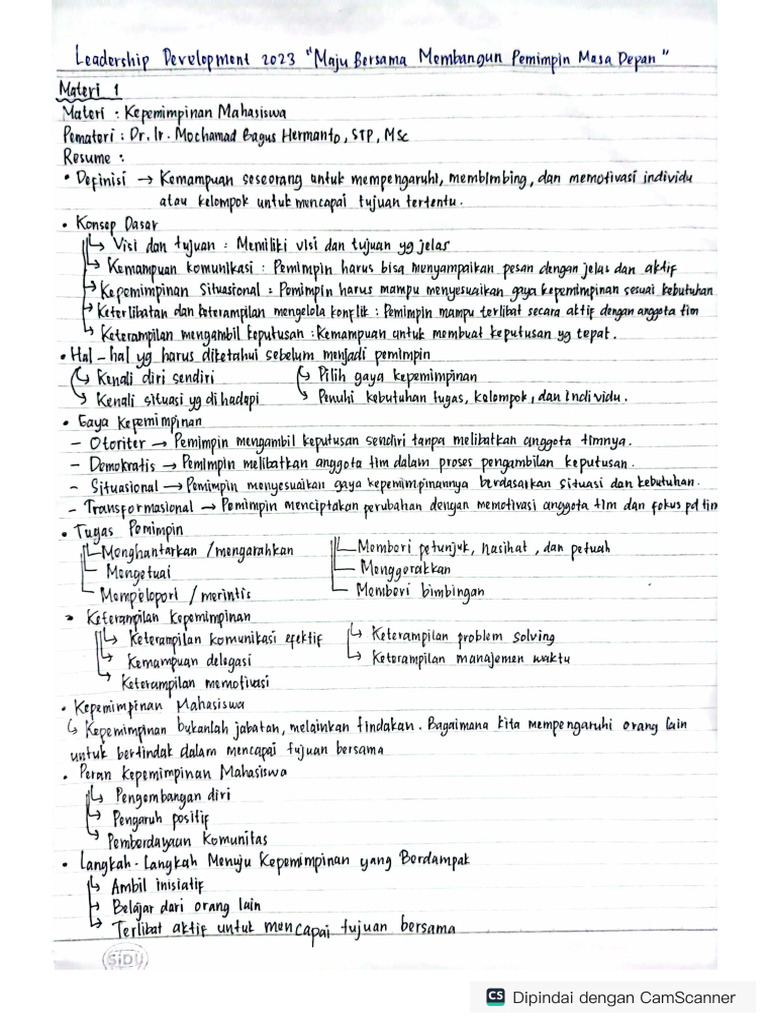 Leadership Development 2023 "Maju Bersama Membangun Pemimpin Masa Depan"
Materi 1
Materi : Kepemimpinan Mahasiswa
Pemateri : Dr. Ir. Mochamad Bagus Hermanto, STP, MSc
Resume :
• Definisi → Kemampuan seseorang untuk mempengaruhi, membimbing, dan memotivasi individu
atau kelompok untuk mencapai tujuan tertentu.
• Konsep Dasar
↳ Visi dan tujuan : Memiliki visi dan tujuan yg jelas
↳ Kemampuan komunikasi : Pemimpin harus bisa menyampaikan pesan dengan jelas dan aktif
↳ Kepemimpinan Situasional : Pemimpin harus mampu menyesuaikan gaya kepemimpinan sesuai kebutuhan
↳ Keterlibatan dan keterampilan mengelola konflik : Pemimpin mampu terlibat secara aktif dengan anggota tim
↳ Keterampilan mengambil keputusan : Kemampuan untuk membuat keputusan yg tepat.
• Hal - hal yg harus diketahui sebelum menjadi pemimpin
↳ Kenali diri sendiri ↳ Pilih gaya kepemimpinan
↳ Kenali situasi yg dihadapi ↳ Penuhi kebutuhan tugas, kelompok, dan individu.
• Gaya Kepemimpinan
- Otoriter → Pemimpin mengambil keputusan sendiri tanpa melibatkan anggota timnya.
- Demokratis → Pemimpin melibatkan anggota tim dalam proses pengambilan keputusan.
- Situasional → Pemimpin menyesuaikan gaya kepemimpinannya berdasarkan situasi dan kebutuhan.
- Transformasional → Pemimpin menciptakan perubahan dengan memotivasi anggota tim dan fokus pd tim
• Tugas Pemimpin
Menghantarkan / mengarahkan Memberi petunjuk, nasihat, dan petuah
Mengetuai Menggerakkan
Mempelopori / merintis Memberi bimbingan
• Keterampilan Kepemimpinan
↳ Keterampilan komunikasi efektif ↳ Keterampilan problem solving
↳ Kemampuan delegasi ↳ Keterampilan manajemen waktu
↳ Keterampilan memotivasi
• Kepemimpinan Mahasiswa
↳ Kepemimpinan bukanlah jabatan, melainkan tindakan. Bagaimana kita mempengaruhi orang lain
untuk bertindak dalam mencapai tujuan bersama
• Peran Kepemimpinan Mahasiswa
↳ Pengembangan diri
↳ Pengaruh positif
↳ Pemberdayaan Komunitas
• Langkah - Langkah Menuju Kepemimpinan yang Berdampak
↳ Ambil inisiatif
↳ Belajar dari orang lain
↳ Terlibat aktif untuk mencapai tujuan bersama
SiDU
CS Dipindai dengan CamScanner